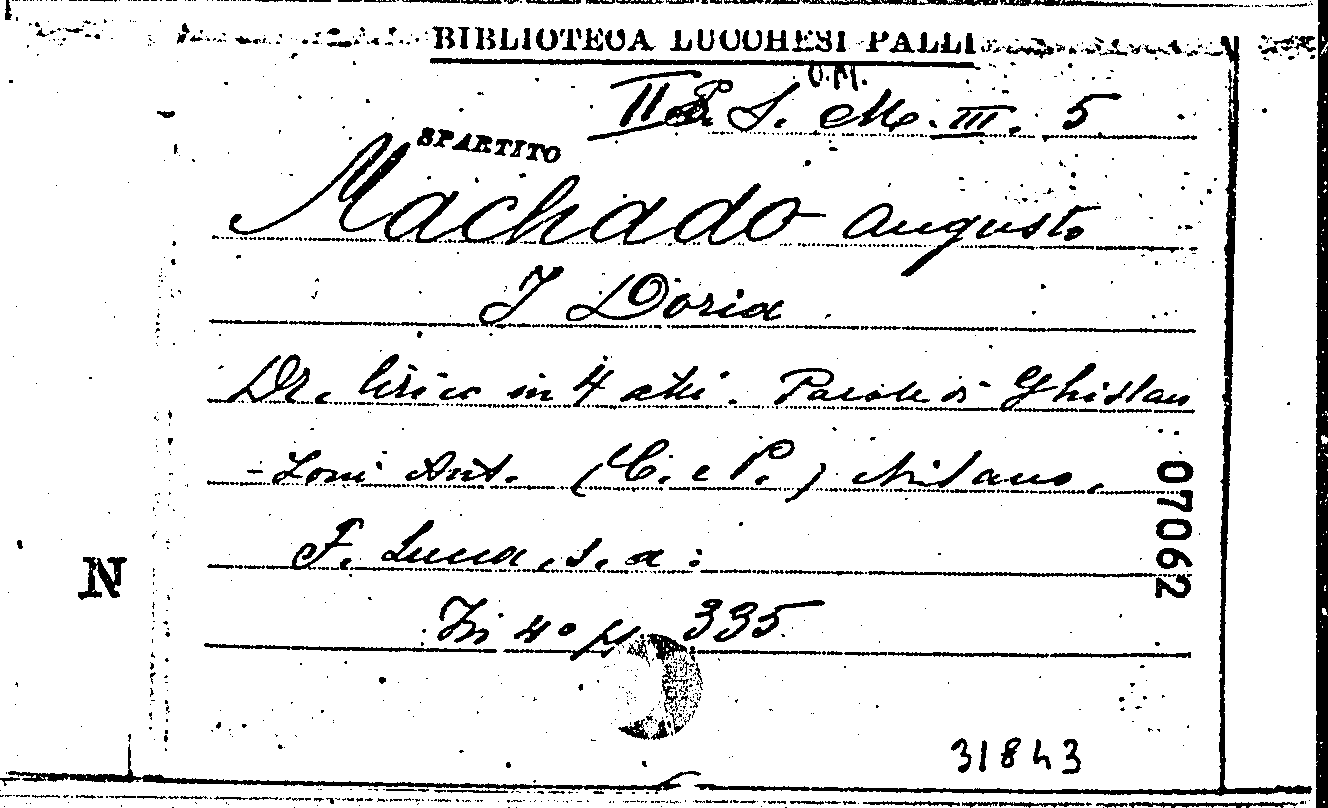 BIBLIOTECA LUCCHESI PALLI
O.M.
II S. M. III. 5
SPARTITO
Machado Augusto
I Doria
Dr. lirico in 4 atti. Parole di Ghislan
-zoni Ant. (C. e P.) Milano.
F. Lucca, s. a:
In 4° p. 335
N
07062
31843